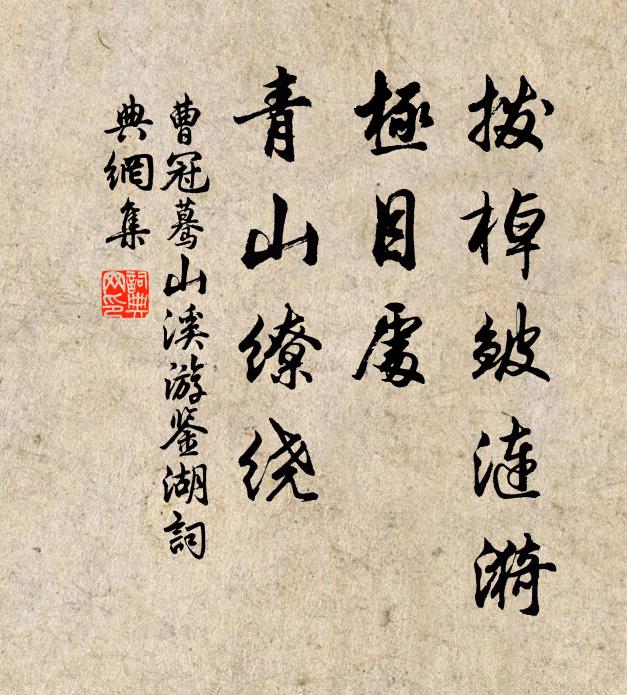 拨棹皱涟漪
極目處
青山缭绕
曹冠驀山溪游鉴湖詞
典網集
詞典網印